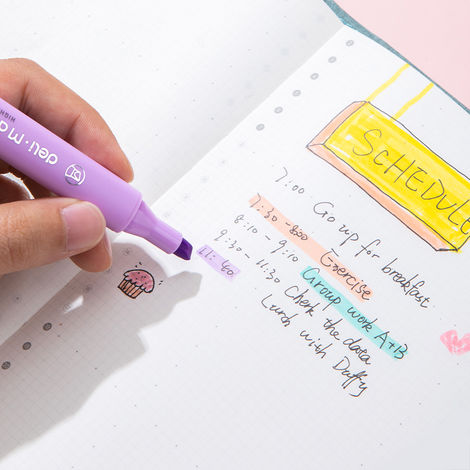 SCHEDULE
7:00 Go up for breakfast
7:30-8:00 Exercise
8:10-9:10 Group work A+B
9:30-11:30 Cherk the data
11:40 Lunch with Duffy
deli
HIGH